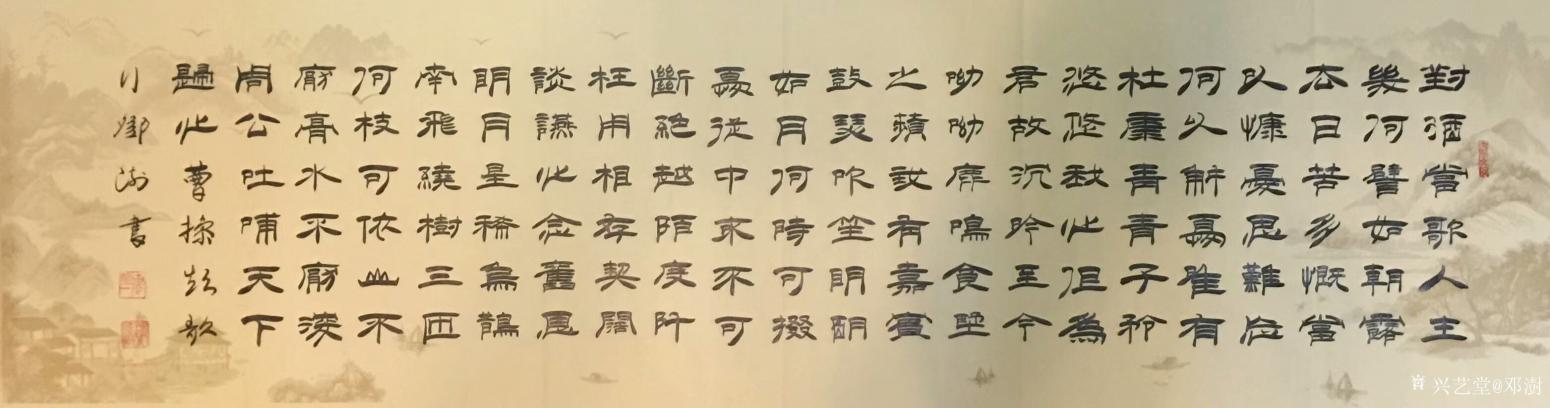 對酒當歌人生
幾何譬如朝露
去日苦多慨當
以慷憂思難忘
何以解憂唯有
杜康青青子衿
悠悠我心但為
君故沉吟至今
呦呦鹿鳴食野
之蘋我有嘉賓
鼓瑟吹笙明明
如月何時可掇
憂從中來不可
斷絕越陌度阡
枉用相存契闊
談讌心念舊恩
明月星稀烏鵲
南飛繞樹三匝
何枝可依山不
厭高水不厭深
周公吐哺天下
歸心 曹操短歌
行 鄧澍書
兴艺堂@邓澍